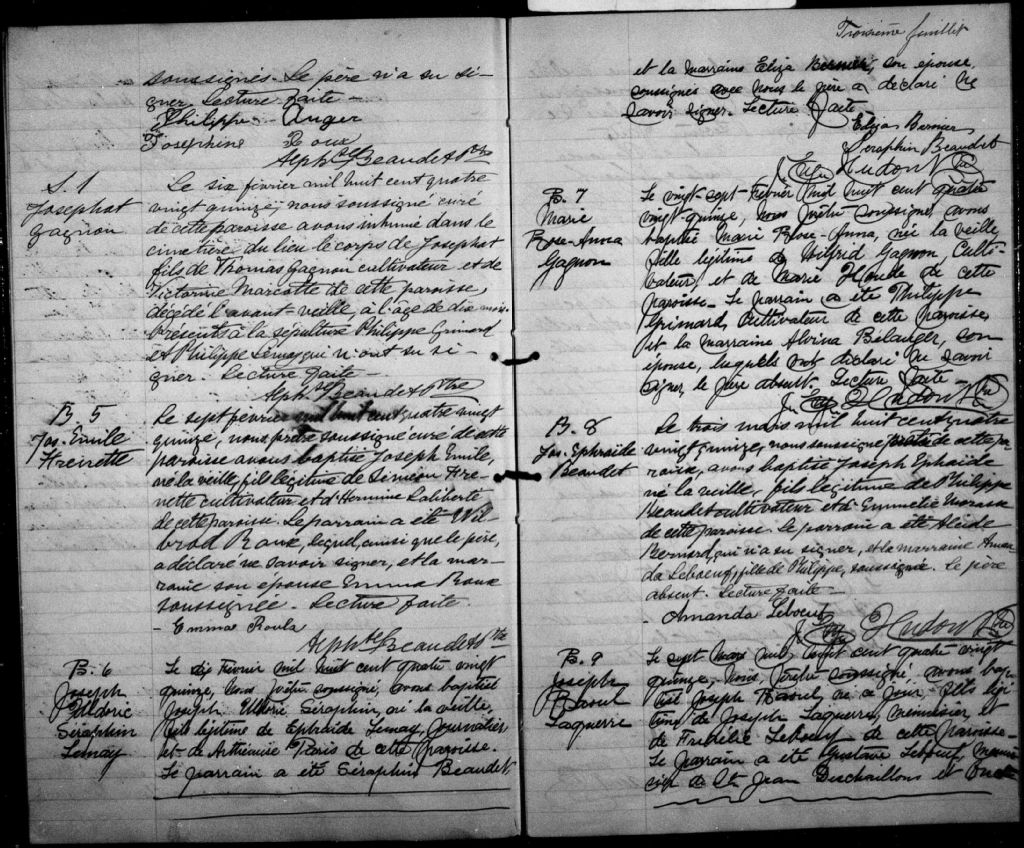 soussignés. Le père n'a su si-
gner. Lecture faite —
Philippe Auger
Joséphine Roux
Alph. Beaudet Ptre
S. 1
Josephat
Gagnon
Le six février mil huit cent quatre
vingt quinze, nous soussigné curé
de cette paroisse avons inhumé dans le
cimetière du lieu le corps de Josephat
fils de Thomas Gagnon cultivateur et de
Victorine Marcotte de cette paroisse,
décédé l'avant-veille, à l'âge de dix mois.
Présents à la sépulture Philippe Grimard
et Philippe Lemay qui n'ont su si-
gner. Lecture faite —
Alph. Beaudet Ptre
B. 5
Jos. Emile
Frenette
Le sept février mil huit cent quatre vingt
quinze, nous prêtre soussigné curé de cette
paroisse avons baptisé Joseph Emile,
né la veille, fils légitime de Siméon Fre-
nette cultivateur et d'Hermine Laliberté
de cette paroisse. Le parrain a été Wil-
brod Roux, lequel, ainsi que le père,
a déclaré ne savoir signer, et la mar-
raine son épouse Emma Roux
soussignée. Lecture faite.
- Emma Roula
Alph. Beaudet Ptre
B. 6
Joseph
Ulderic
Séraphin
Lemay
Le dix Février mil huit cent quatre vingt
quinze, Nous prêtre soussigné, avons baptisé
Joseph Ulderic Séraphin, né la veille,
fils légitime de Ephraïde Lemay Journalier
et de Arthémise Paris de cette paroisse.
Le parrain a été Séraphin Beaudet
Troisième feuillet
et la marraine Eliza Bernier, son épouse,
soussignés avec nous le père a déclaré ne
savoir signer. Lecture faite
Eliza Bernier
Séraphin Beaudet
Hudon Ptre
B. 7
Marie
Rose-Anna
Gagnon
Le vingt-sept Février mil huit cent quatre
vingt-quinze, nous prêtre soussigné, avons
baptisé Marie Rose-Anna, née la veille,
fille légitime de Wilfrid Gagnon, Culti-
vateur, et de Marie Houle de cette
paroisse. Le parrain a été Philippe
Grimard, Cultivateur de cette paroisse,
et la marraine Alvina Bélanger, son
épouse, lesquels ont déclaré ne savoir
signer, le père absent. Lecture faite —
Hudon Ptre
B. 8
Jos. Ephraïde
Beaudet
Le trois mars mil huit cent quatre
vingt quinze, nous soussigné prêtre de cette pa-
roisse, avons baptisé Joseph Ephaïde
né la veille, fils légitime de Philippe
Beaudet cultivateur et d'Emmélie Morasse
de cette paroisse. Le parrain a été Alcide
Bernard, qui n'a su signer, et la marraine Aman-
da Leboeuf, fille de Philippe, soussignée. Le père
absent. Lecture faite —
- Amanda Leboeuf
Hudon Ptre
B. 9
Joseph
Raoul
Laguerre
Le sept Mars mil huit cent quatre vingt
quinze, Nous, Prêtre soussigné, avons bap-
tisé Joseph Raoul né ce jour, fils légi-
time de Joseph Laguerre, menuisier, et
de Leboeuf de cette paroisse.
Le parrain a été Gustave Leboeuf, Menui-
sier de St Jean Deschaillons et